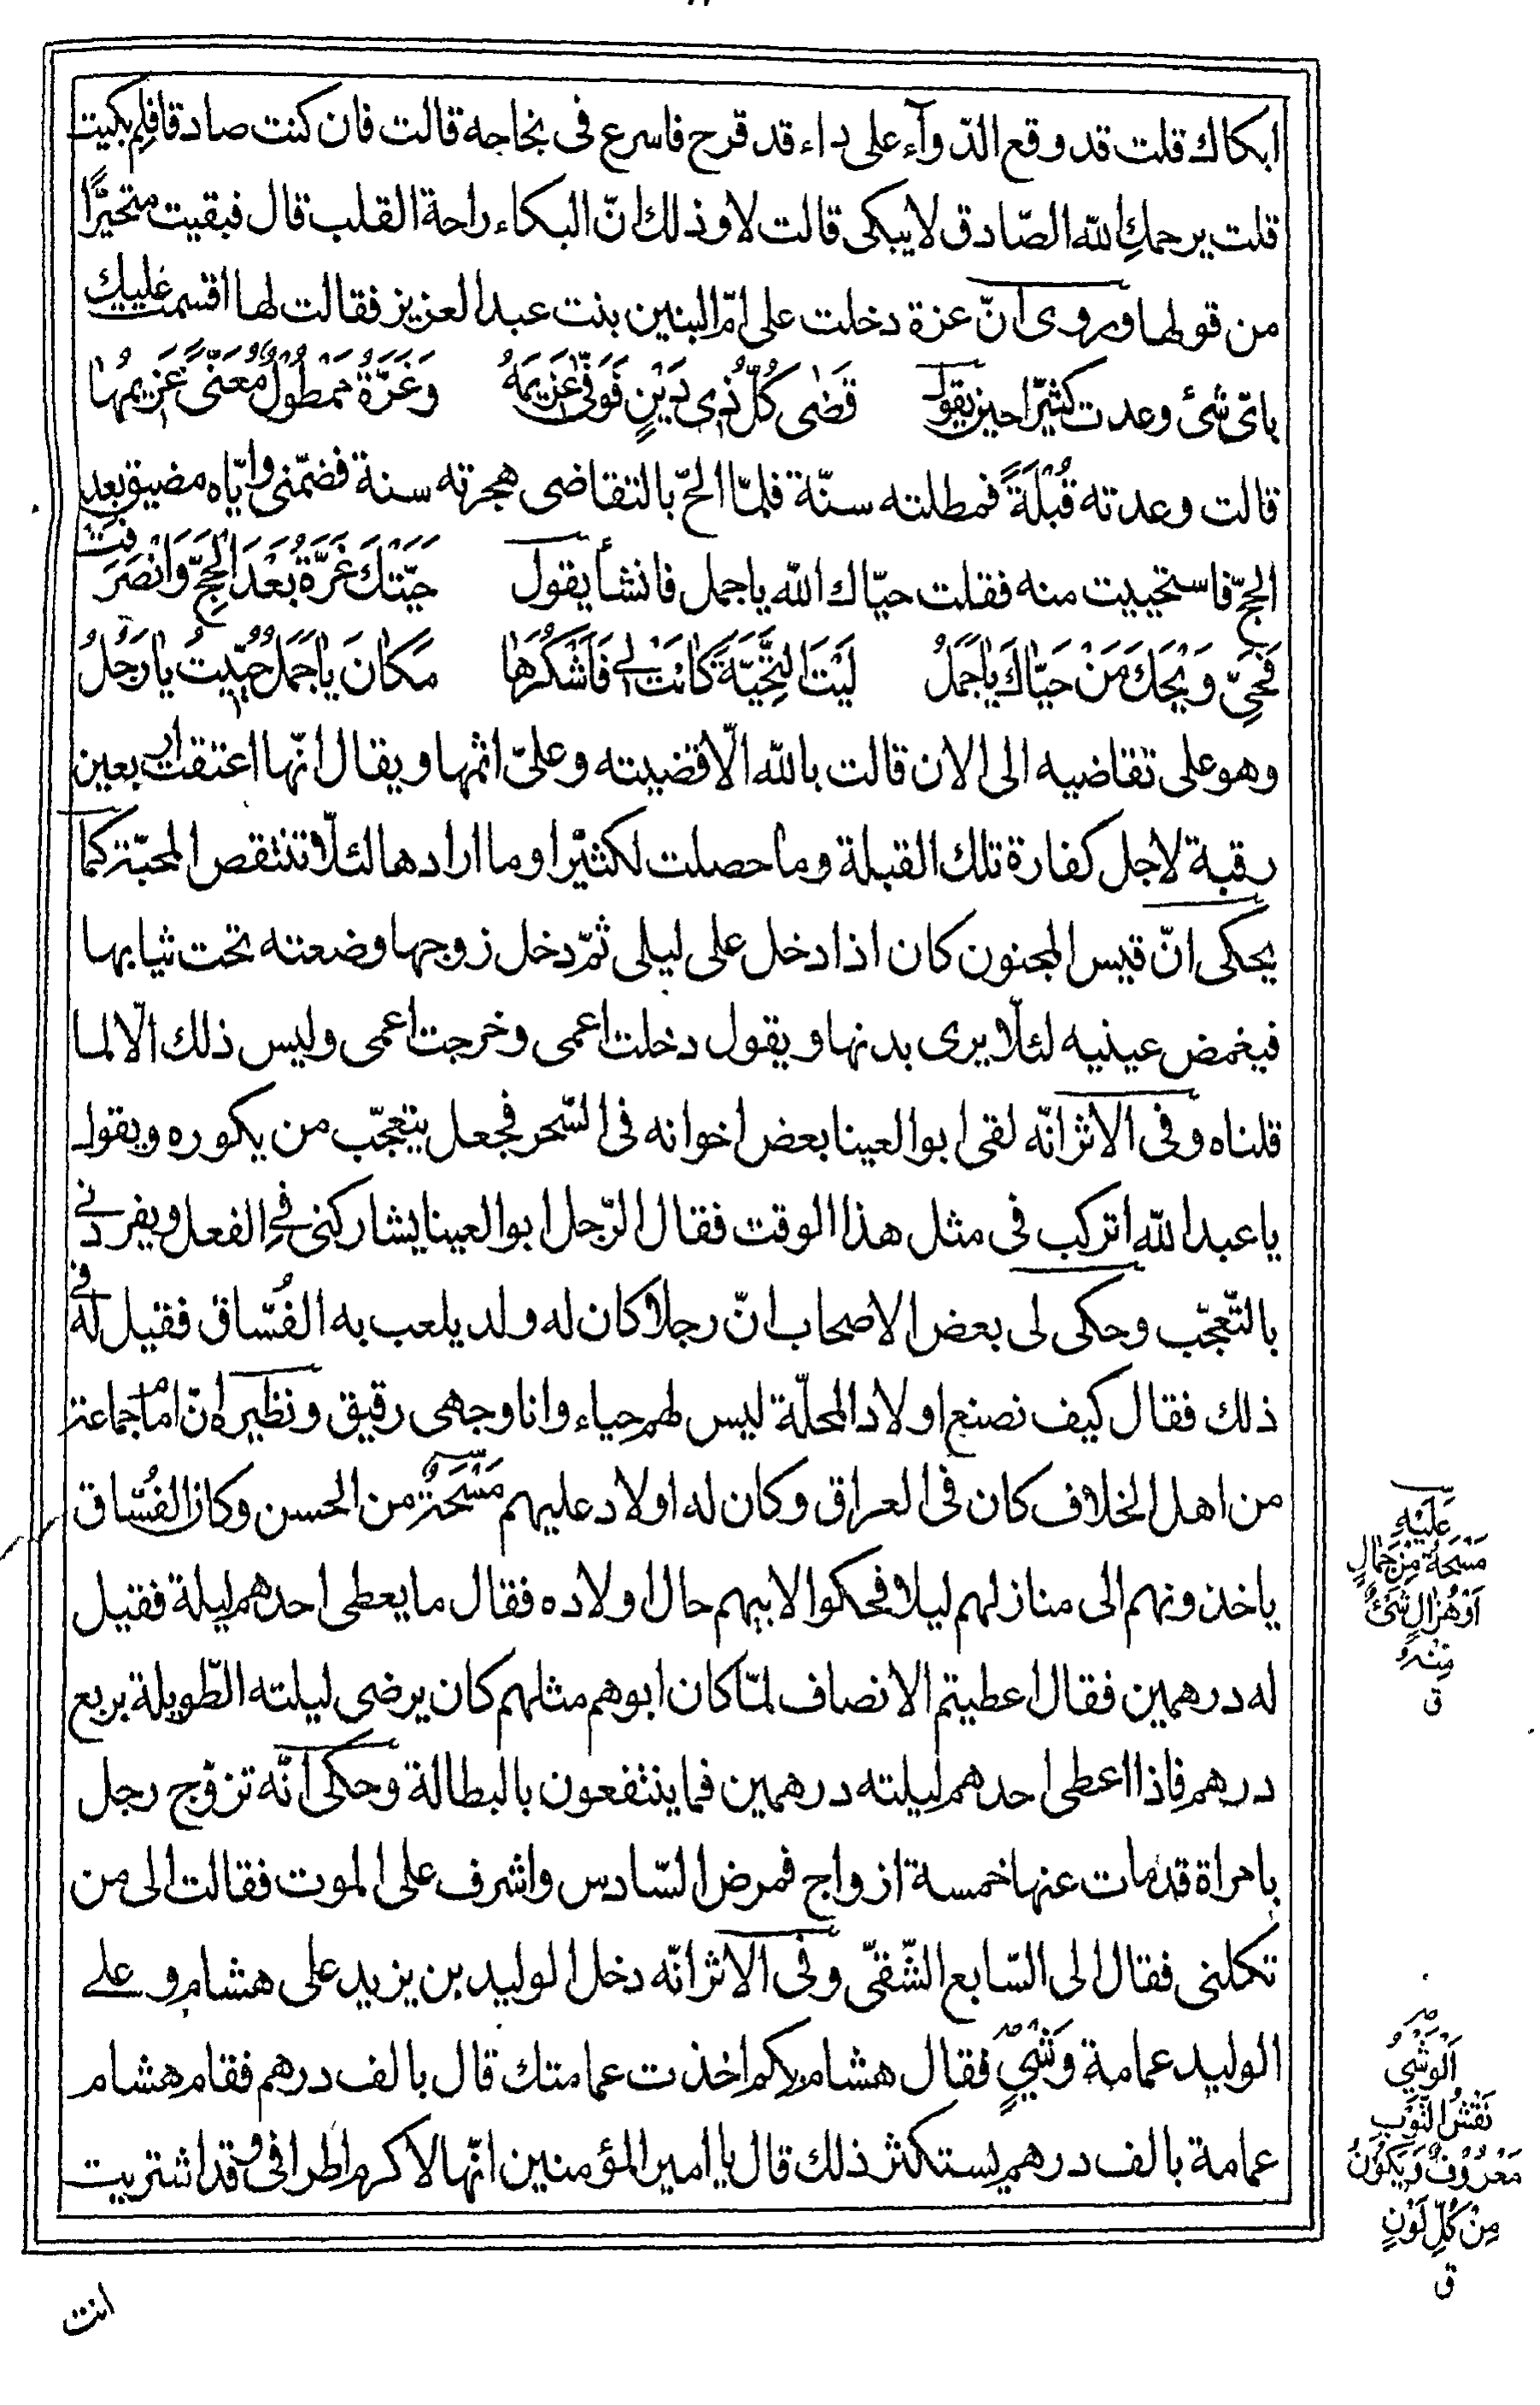 ابكاك قلت قد وقع الدّوآء على داء قد قرح فاسرع فى نجاجه قالت فان كنت صادقا فلِم بكيت
قلت يرحمكِ الله الصّادق لا يبكى قالت لا وذلك انّ البكاء راحة القلب قال فبقيت متحيّرًا
من قولها وروى انّ عزة دخلت على امّ البنين بنت عبد العزيز فقالت لها اقسمت عليك
باىّ شئ وعدت كثيّرا حين يقول قَضٰى كُلُّ ذُى دَيْنٍ فَوَفّٰى غَرِيمَهُ وَعَزَّةُ مَمْطُولٌ مُعَنًّى غَرِيمُهٰا
قالت وعدته قُبْلَةً فمطلته سنّة فلمّا الحّ بالتقاضى هجرته سنة فضمّنى وايّاه مضيق بعد
الحجّ فاستحييت منه فقلت حيّاك الله يا جمل فانشأ يقول حَيَّتْكَ عَزَّةُ بَعْدَ الْحَجِّ وَانْصَرَفَتْ
فَحَىِّ وَيْحَكَ مَنْ حَيّٰاكَ يٰا جَمَلُ لَيْتَ التَّحِيَّةَ كٰانَتْ لِى فَاَشْكُرَهٰا مَكٰانَ يٰا جَمَلُ حُيِّيتَ يٰا رَجُلُ
وهو على تقاضيه الى الان قالت بالله الّا قضيته وعلىّ اثمها ويقال انّها اعتقت اربعين
رقبة لاجل كفارة تلك القبلة وما حصلت لكثيّر او ما ارادها لئلّا تنتقص المحبّة كما
يحكى انّ قيس المجنون كان اذا دخل على ليلى ثمّ دخل زوجها وضعته تحت ثيابها
فيغمض عينيه لئلّا يرى بدنها ويقول دخلت اعمى وخرجت اعمى وليس ذلك الّا لما
قلناه وفى الاثر انّه لقى ابو العينا بعض اخوانه فى السّحر فجعل يتعجّب من بكوره ويقول
يا عبد الله اتركب فى مثل هذا الوقت فقال الرّجل ابو العينا يشاركنى فى الفعل ويفردنى
بالتّعجّب وحكى لى بعض الاصحاب انّ رجلا كان له ولد يلعب به الفُسّاق فقيل له فى
ذلك فقال كيف نصنع اولاد المحلّة ليس لهم حياء وانا وجهى رقيق ونظيره انّ امام جماعة
من اهل الخلاف كان فى العراق وكان له اولاد عليهم مَسْحَةٌ من الحسن وكان الفسّاق
ياخذونهم الى منازلهم ليلا فحكوا لابيهم حال اولاده فقال ما يعطى احدهم ليلة فقيل
له درهمين فقال اعطيتم الانصاف لمّا كان ابوهم مثلهم كان يرضى ليلته الطّويلة بربع
درهم فاذا اعطى احدهم ليلته درهمين فما ينتفعون بالبطالة وحكى انّه تزوّج رجل
بامراة قد مات عنها خمسة ازواج فمرض السّادس واشرف على الموت فقالت الى من
تكلنى فقال الى السّابع الشّقىّ وفى الاثر انّه دخل الوليد بن يزيد على هشام وعلى
الوليد عمامة وَشْىٍ فقال هشام بكم اخذت عمامتك قال بالف درهم فقام هشام
عمامة بالف درهم يستكثر ذلك قال يا امير المؤمنين انّها لاكرم اطرافى وقد اشتريت
انت
عَلَيْهِ
مَسْحَةٌ مِنْ جَمٰالٍ
اَوْ هُزٰالٍ شَىْءٌ
مِنْهُ
ق
اَلْوَشْىُ
نَقْشُ الثَّوْبِ
مَعْرُوفٌ وَيَكُونُ
مِنْ كُلِّ لَوْنٍ
ق